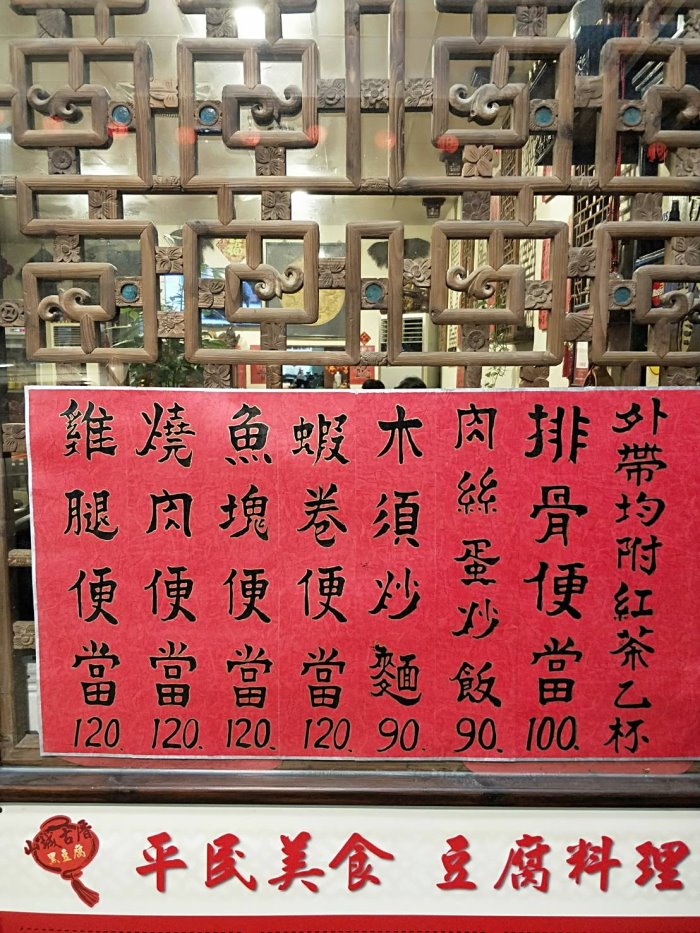 外帶均附紅茶乙杯
排骨便當100.
肉絲蛋炒飯90.
木須炒麵90.
蝦卷便當120.
魚塊便當120.
燒肉便當120.
雞腿便當120.
山城古厝
黑豆腐
平民美食 豆腐料理